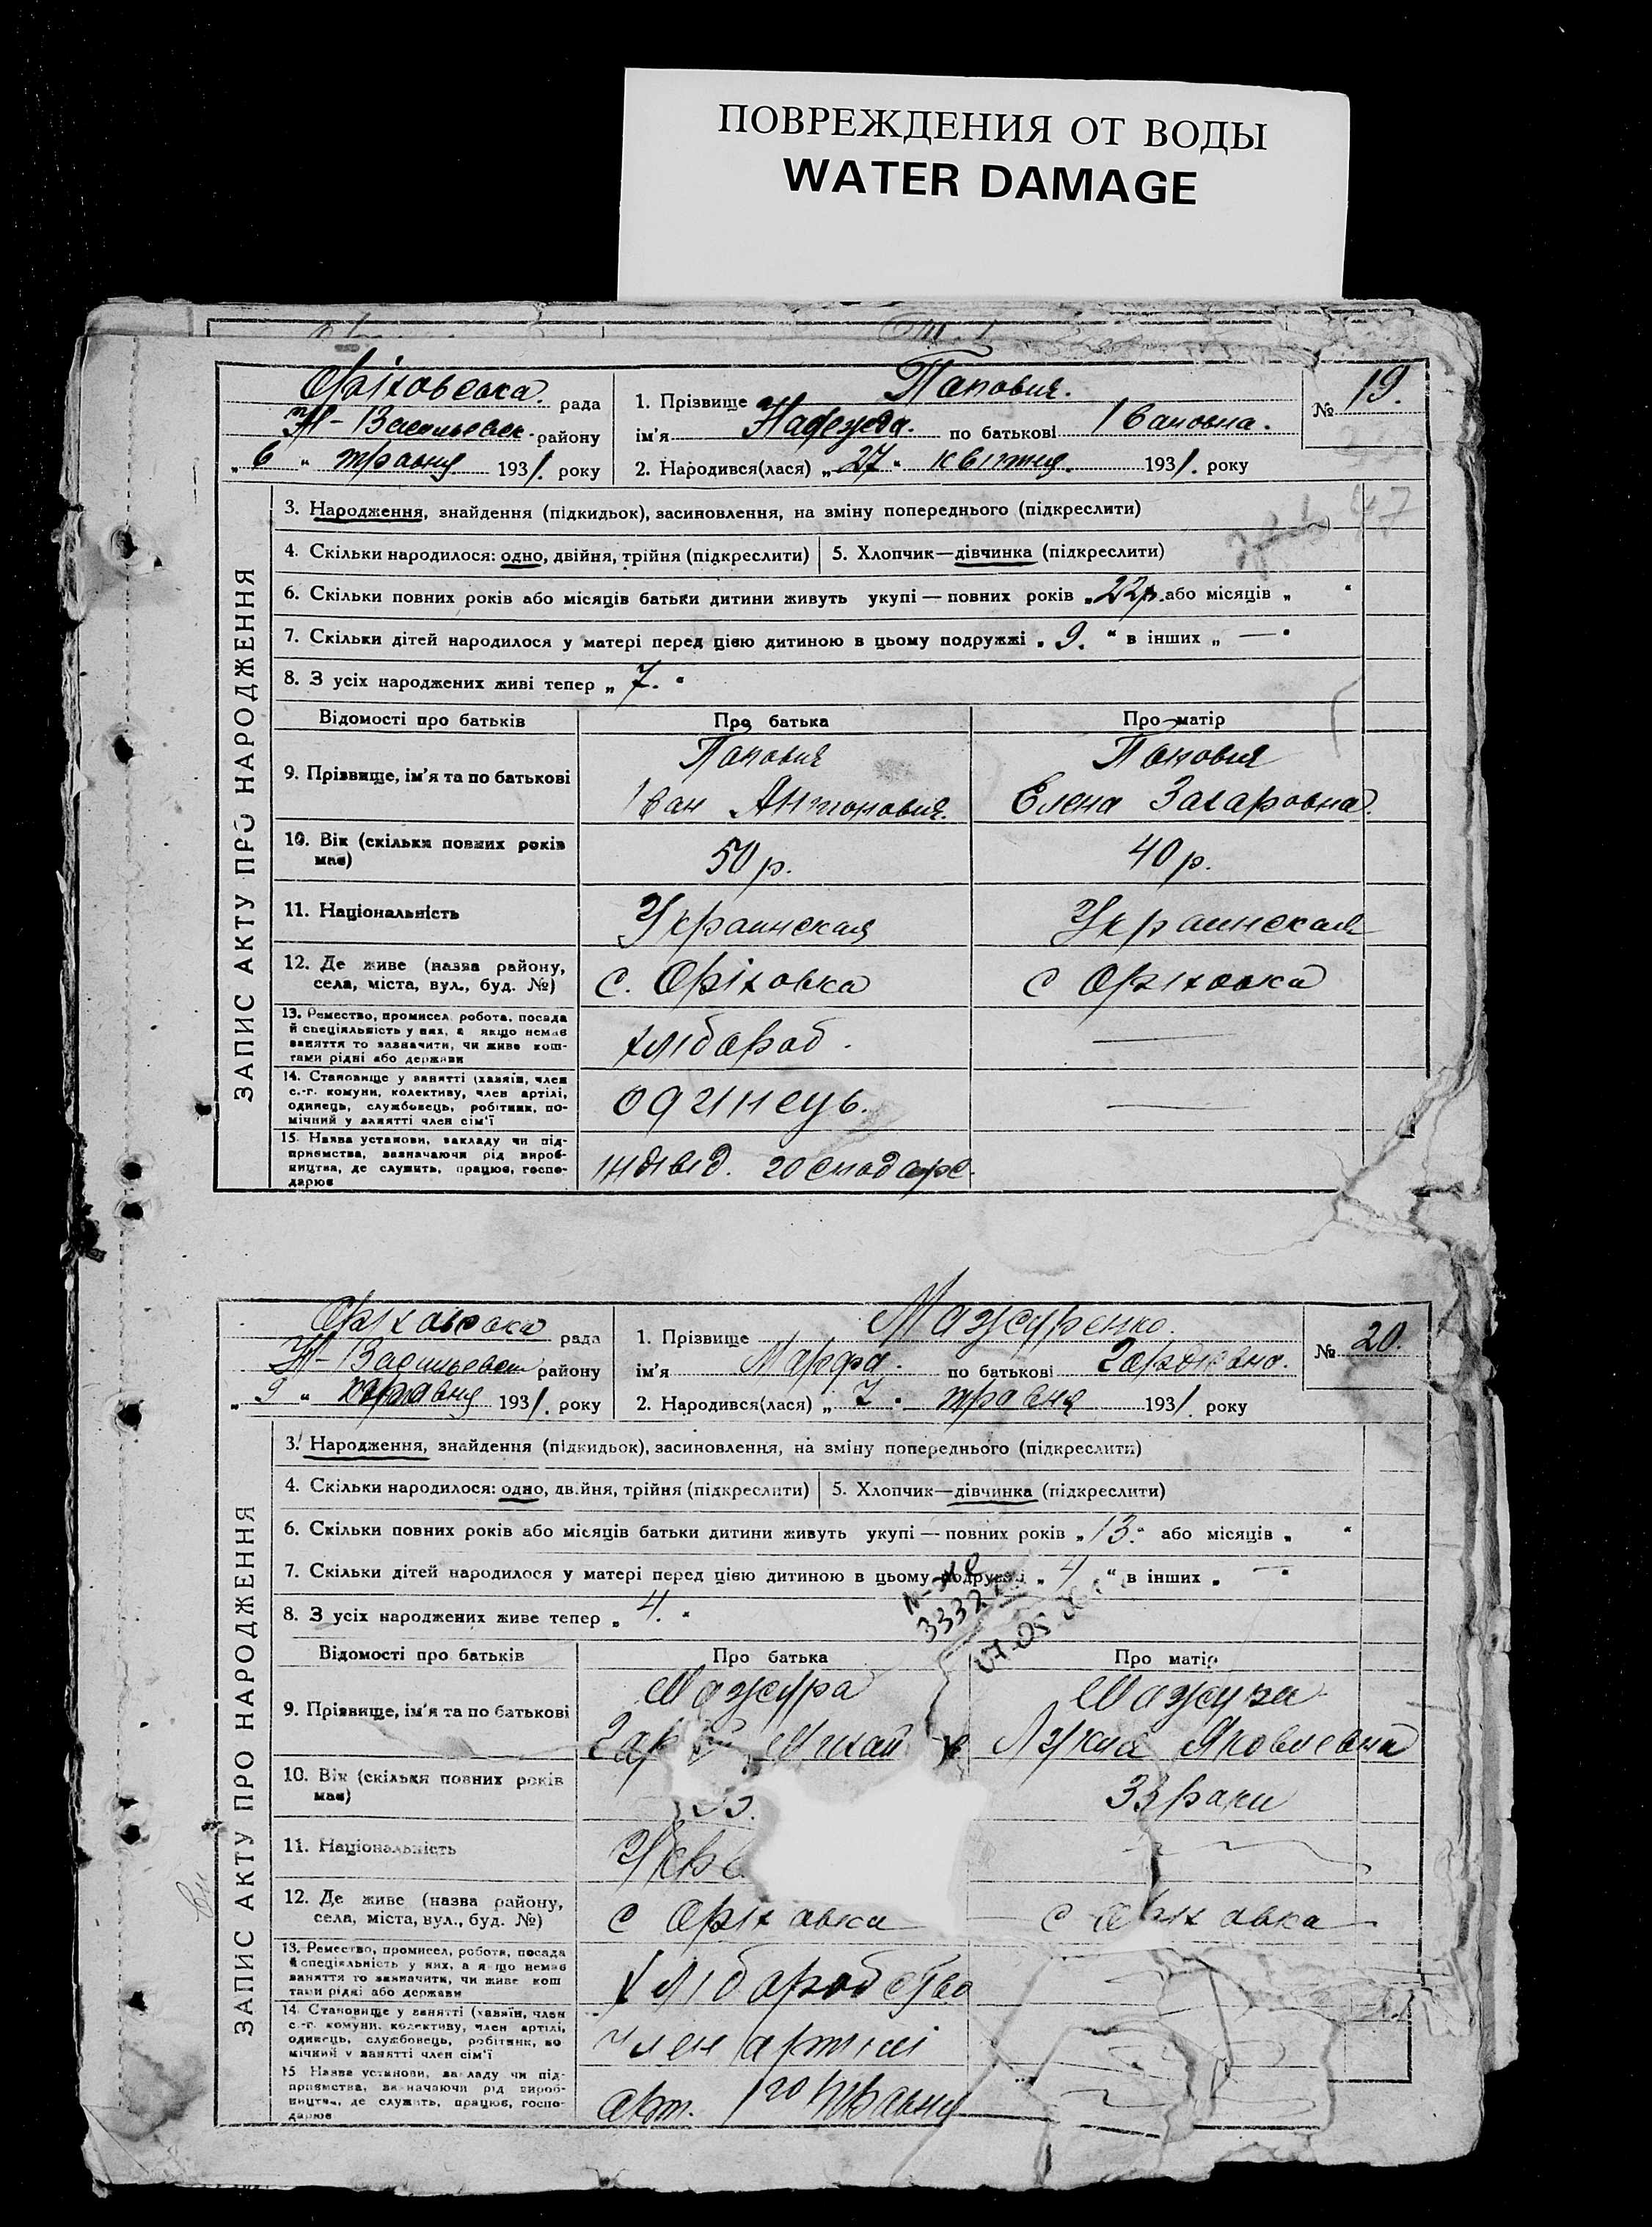 ПОВРЕЖДЕНИЯ ОТ ВОДЫ
WATER DAMAGE
Оріховська рада
Н-Васильевск. району
„ 6 “ травня 1931. року
1. Прізвище Папович.
ім’я Надежда. по батькові Івановна.
2. Народився(лася) „ 27 “ квітня. 1931. року
№ 19.
47
ЗАПИС АКТУ ПРО НАРОДЖЕННЯ
3. Народження, знайдення (підкидьок), засиновлення, на зміну попереднього (підкреслити)
4. Скільки народилося: одно, двійня, трійня (підкреслити)
5. Хлопчик—дівчинка (підкреслити)
6. Скільки повних років або місяців батьки дитини живуть укупі — повних років „ 22р. або місяців „ “
7. Скільки дітей народилося у матері перед цією дитиною в цьому подружжі „ 9. “ в інших „ — “
8. З усіх народжених живі тепер „ 7. “
Відомості про батьків
Про батька
Про матір
9. Прізвище, ім’я та по батькові
Папович
Іван Антонович.
Папович
Елена Захаровна.
10. Вік (скільки повних років має)
50 р.
40 р.
11. Національність
Украинская
Украинская
12. Де живе (назва району, села, міста, вул., буд. №)
с. Оріховка
с Оріховка
13. Ремество, промисел, робота, посада й спеціяльність у них, а якщо немає заняття то зазначити, чи живе коштами рідні або держави
хлібароб.
—
14. Становище у занятті (хазяїн, член с.-г. комуни, колективу, член артілі, одинець, службовець, робітник, помічний у занятті член сім’ї
одинець.
—
15. Назва установи, закладу чи підприємства, зазначаючи рід виробництва, де служить, працює, господарює
індівід. господарс.
Оріховська рада
Н-Васильевск району
„ 9 “ травня 1931. року
1. Прізвище Мажуренко.
ім’я Марфа. по батькові
2. Народився(лася) „ 7 “ травня 1931. року
№ 20.
ЗАПИС АКТУ ПРО НАРОДЖЕННЯ
3. Народження, знайдення (підкидьок), засиновлення, на зміну попереднього (підкреслити)
4. Скільки народилося: одно, двійня, трійня (підкреслити)
5. Хлопчик—дівчинка (підкреслити)
6. Скільки повних років або місяців батьки дитини живуть укупі — повних років „ 13. “ або місяців „ “
7. Скільки дітей народилося у матері перед цією дитиною в цьому подружжі „ 4 “ в інших „ — “
8. З усіх народжених живе тепер „ 4. “
Відомості про батьків
Про батька
Про матір
9. Прізвище, ім’я та по батькові
Мажура
Михай
Мажура
Яковлевна
10. Вік (скільки повних років має)
33 роки
11. Національність
12. Де живе (назва району, села, міста, вул., буд. №)
с Оріховка
с Оріховка
13. Ремество, промисел, робота, посада й спеціяльність у них, а якщо немає заняття то зазначити, чи живе коштами рідні або держави
хлібаробство
14. Становище у занятті (хазяїн, член с.-г. комуни, колективу, член артілі, одинець, службовець, робітник, помічний у занятті член сім’ї
член артілі
15. Назва установи, закладу чи підприємства, зазначаючи рід виробництва, де служить, працює, господарює
арт. 1го травня